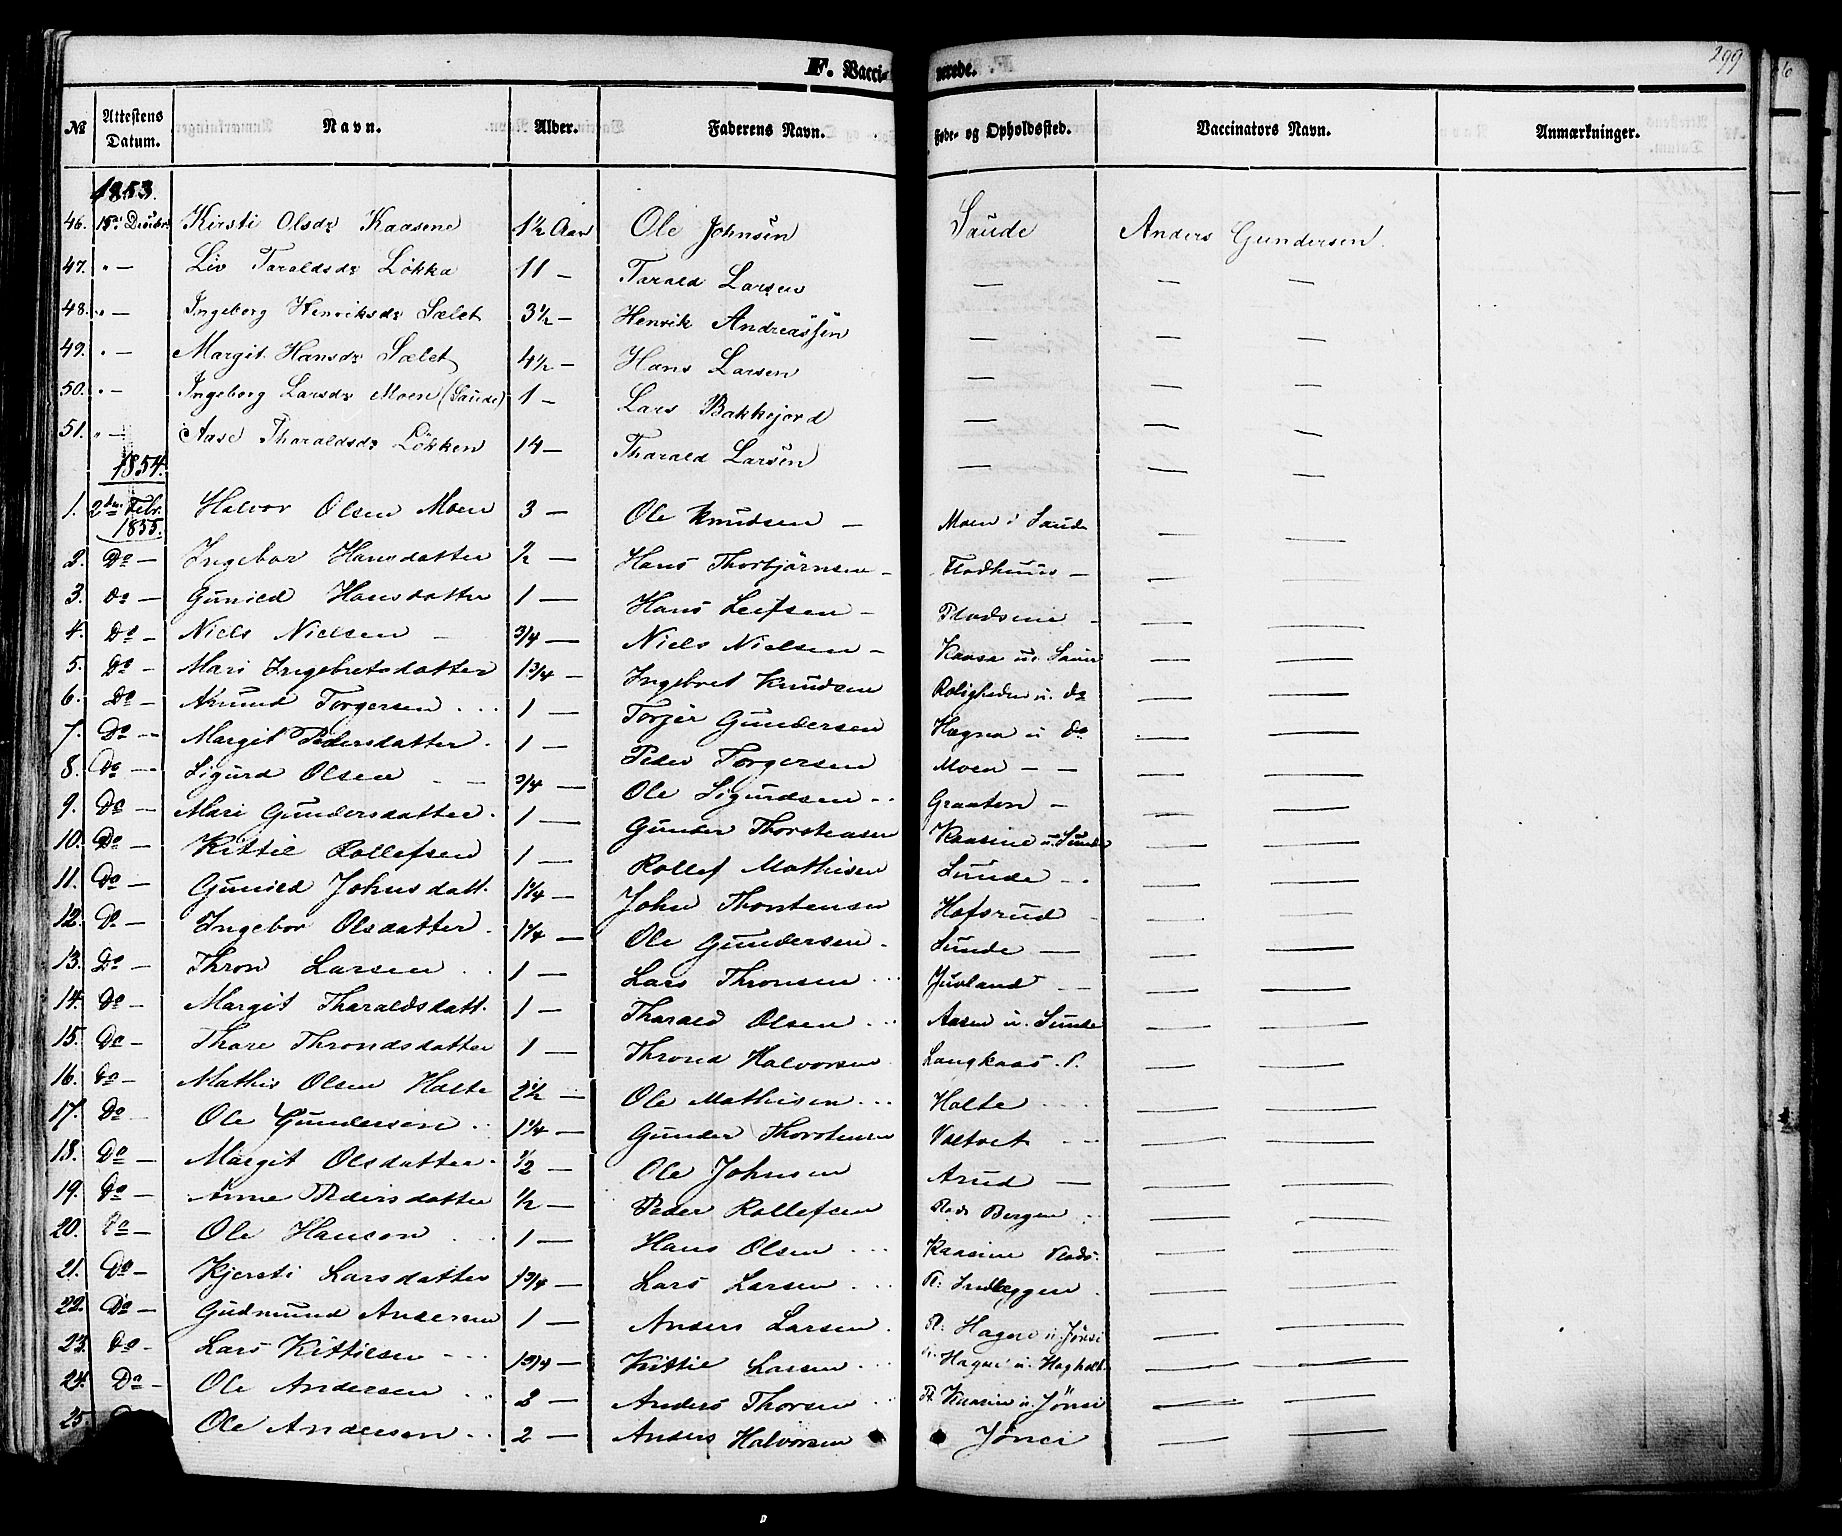 F. Vacci- nerede. 299
No Attestens Datum. Navn. Alder. Faderens Navn. Føde- og Opholdssted. Vaccinators Navn. Anmærkninger.
1853.
46. Kirsti Olsdr Kaasene 1½ Aar Ole Johnsen Saude Anders Gundersen.
47. " — Liv Taraldsdr Løkka 11 — Tarald Larsen — — —
48. " — Ingeborg Henriksdr Sælet 3½ — Henrik Andreassen — — —
49. " — Margit Hansdr Sælet 4½ — Hans Larsen — — —
50. " — Ingeborg Larsdr Moen (Saude) 1 — Lars Bakkejord — — —
51. " — Aase Tharaldsdr Løkken 14 — Tharald Larsen — — —
1854.
1. 2den Febr. 1855. Halvor Olsen Moen 3 — Ole Knudsen — Moen i Saude — —
2. Do — Ingebor Hansdatter ½ — Hans Thorbjørnsen — Flodhuus — — —
3. Do — Gunild Hansdatter 1 — Hans Leifsen — — —
4. Do — Niels Nielsen — ¾ — Niels Nielsen — Kaasa — —
5. Do — Mari Ingebretsdatter 1¾ — Ingebret Knudsen Roligheden u. Do — —
6. Do — Torgersen 1 — Torger Gundersen Hagna u Do — —
7. Do — Margit Pedersdatter. 1 — Peder Torgersen Moen — — — —
8. Do — Sigurd Olsen — — ¾ — Ole Sigurdsen Graaten — — —
9. Do — Mari Gundersdatter. 1 — Gunder Thorstensen Kaasine u. Sunde — —
10. Do — Kittil Rollefsen 1 — Rollef Mathisen Sunde — — —
11. Do — Gunild Johnsdatt. 1¼ — John Thorstensen Hofsrud — — —
12. Do — Ingebor Olsdatter. 1¼ — Ole Gundersen. Sunde — — —
13. Do — Thron Larsen 1 — Lars Thronsen Juvland — — —
14. Do — Margit Tharaldsdatt. 1 — Tharald Olsen Aasen u. Sunde — —
15. Do — Thore Throndsdatter 1 — Thrond Halvorsen Langkaas — —
16. Do — Mathis Olsen Holte 2½ — Ole Mathisen Holte — —
17. Do Ole Gundersen 1¼ — Gunder Thorstensen Valtvet — —
18. Do — Margit Olsdatter ½ — Ole Johnsen Arud — — —
19. Do — Anne Pedersdatter ½ — Peder Rollefsen Bergen — —
20. Do — Ole Hansen 1 — Hans Olsen Kaasine — —
21. Do — Kjersti Larsdatter 1¾ — Lars Larsen Indleggen — —
22. Do — Gudmund Andersen 1 — Anders Larsen. — —
23. Do — Lars Kittilsen 1¾ — Kittil Larsen — —
24. Do — Ole Andersen 2 — Anders Thorsen Kaasine u. Jønsi — —
25. Ole Andersen 2 — Anders Halvorsen Jønsi — —